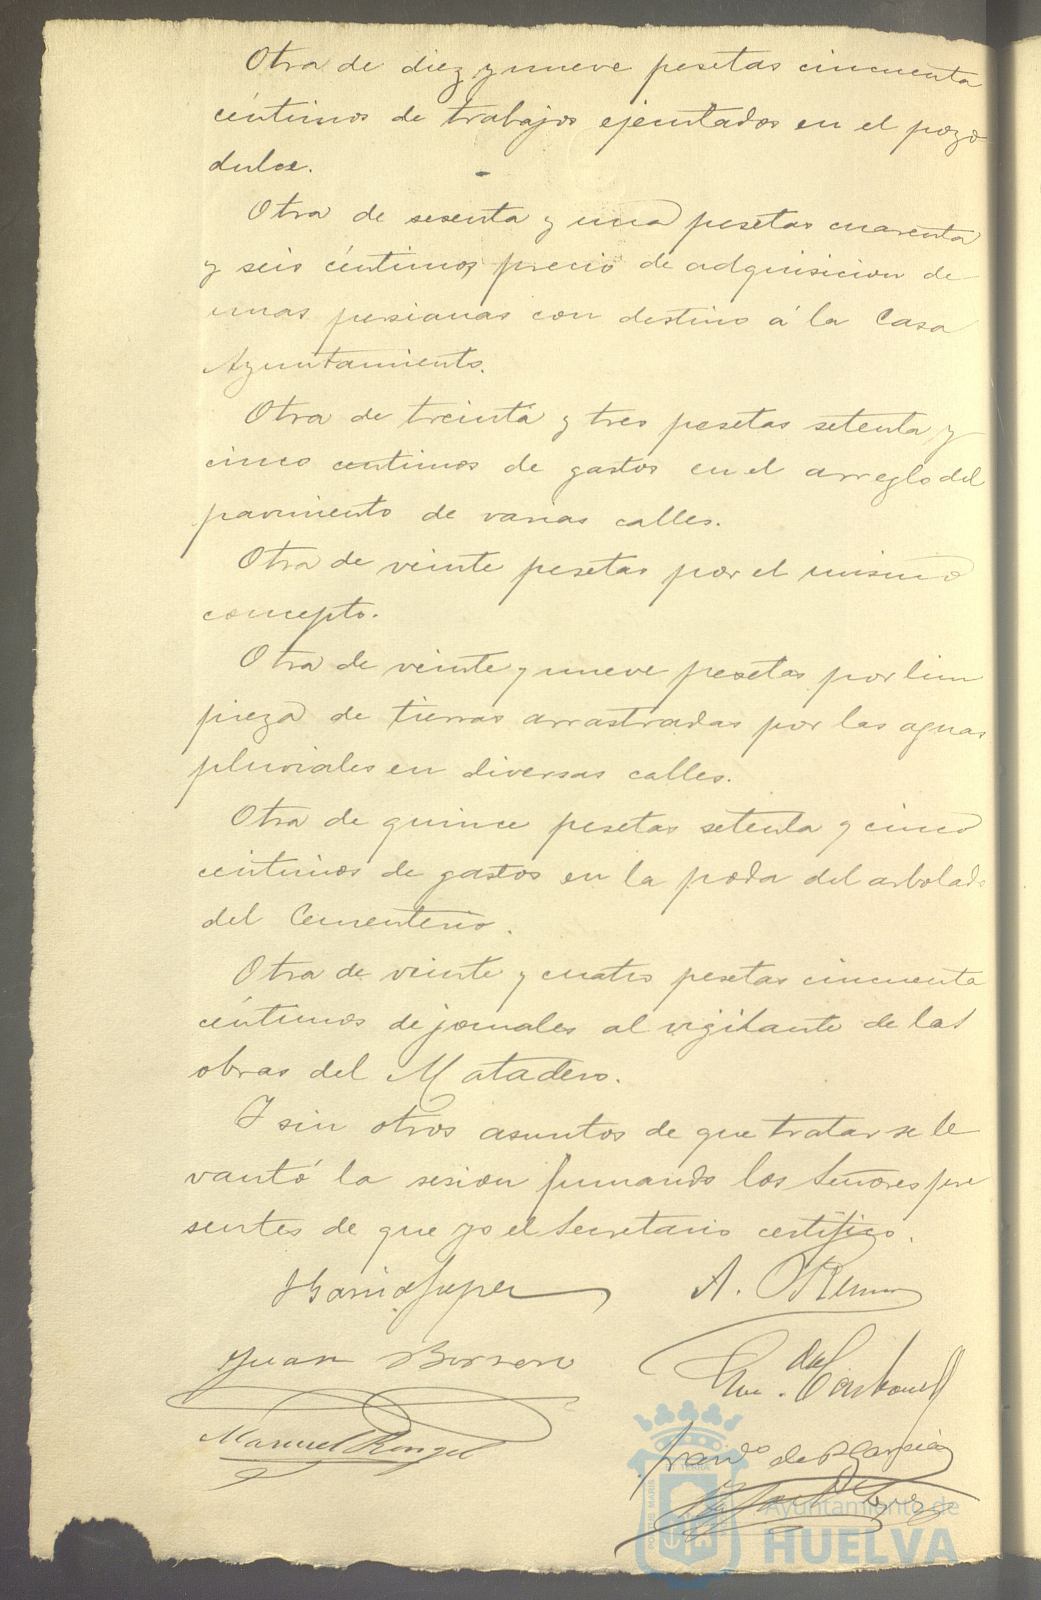 Otra de diez y nueve pesetas cincuenta
céntimos de trabajos ejecutados en el pozo
dulce.
Otra de sesenta y una pesetas cuarenta
y seis céntimos precio de adquisicion de
unas persianas con destino á la Casa
Ayuntamiento.
Otra de treinta y tres pesetas setenta y
cinco centimos de gastos en el arreglo del
pavimento de varias calles.
Otra de veinte pesetas por el mismo
concepto.
Otra de veinte y nueve pesetas por lim
pieza de tierras arrastradas por las aguas
pluviales en diversas calles.
Otra de quince pesetas setenta y cinco
céntimos de gastos en la poda del arbolado
del Cementerio.
Otra de veinte y cuatro pesetas cincuenta
céntimos de jornales al vigilante de las
obras del Matadero.
Y sin otros asuntos de que tratar se le
vantó la sesion firmando los Señores pre
sentes de que yo el Secretario certifico.
A.
Juan Borrero
Manuel Rengel
Franco de P. Garcia
Ayuntamiento de
HUELVA